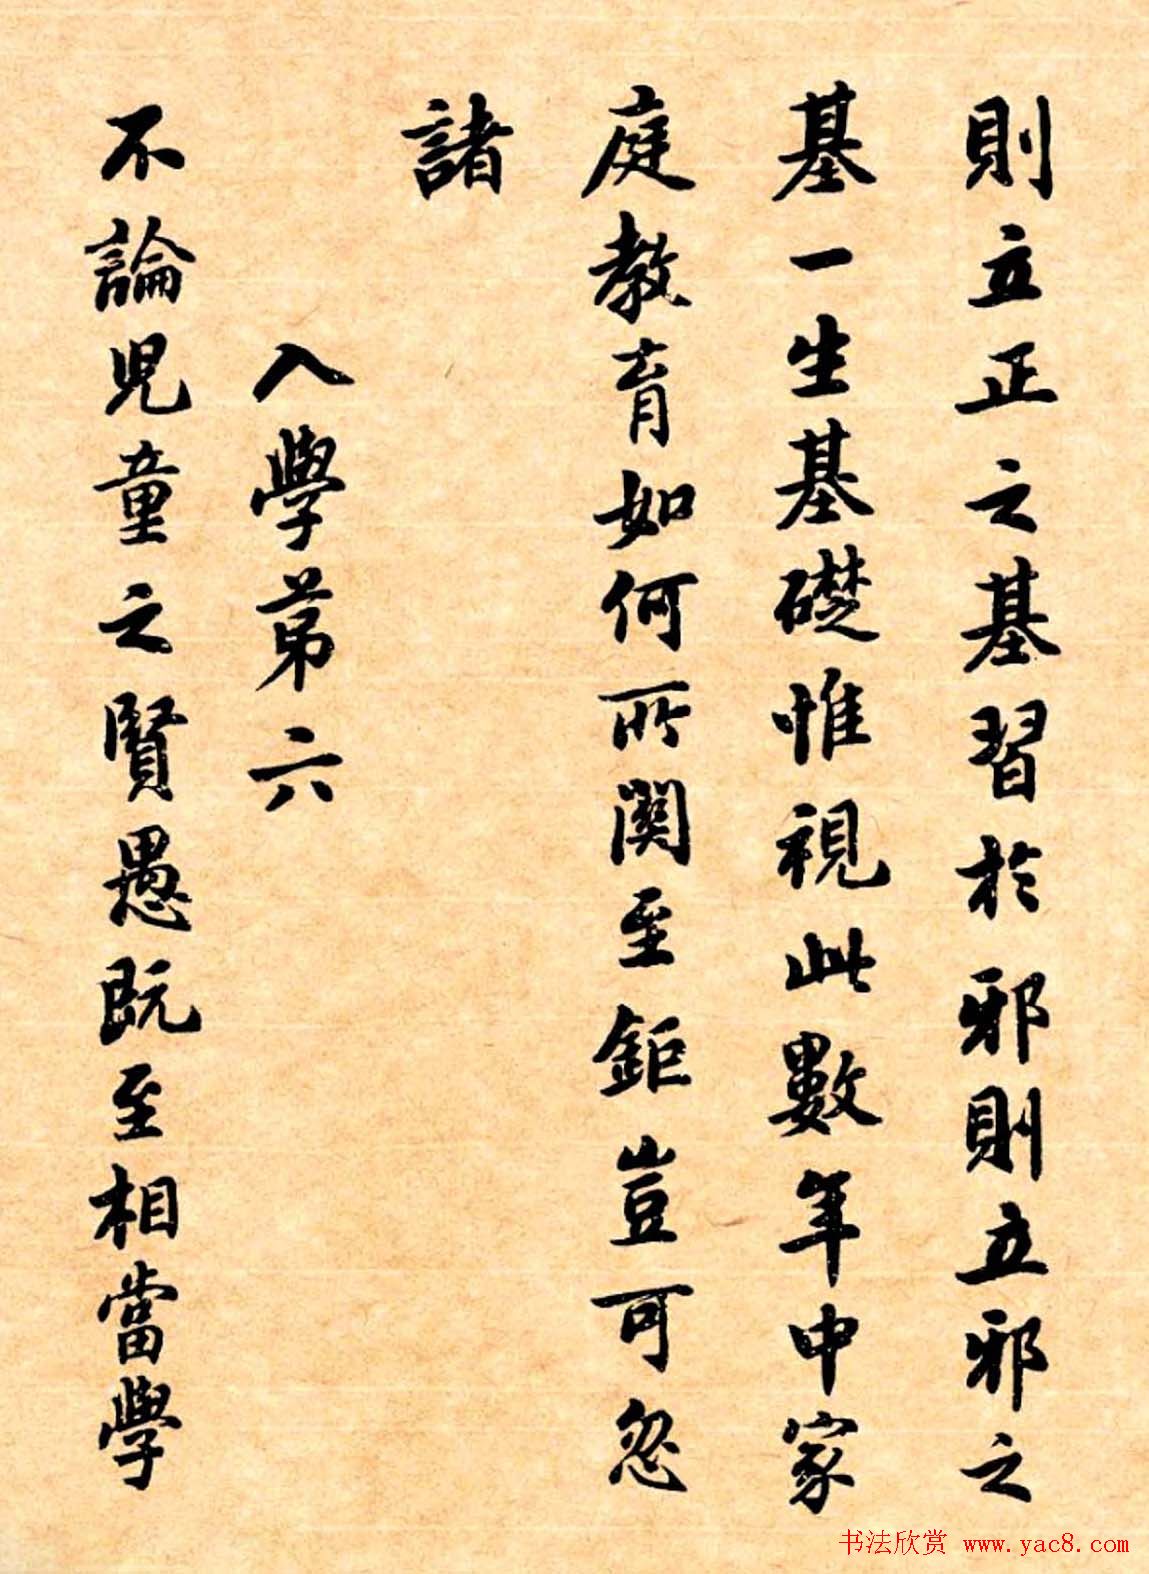 則立正之基習於邪則立邪之
基一生基礎惟視此數年中家
庭教育如何所關至鉅豈可忽
諸
入學第六
不論児童之賢愚既至相當學
书法欣赏 www.yac8.com